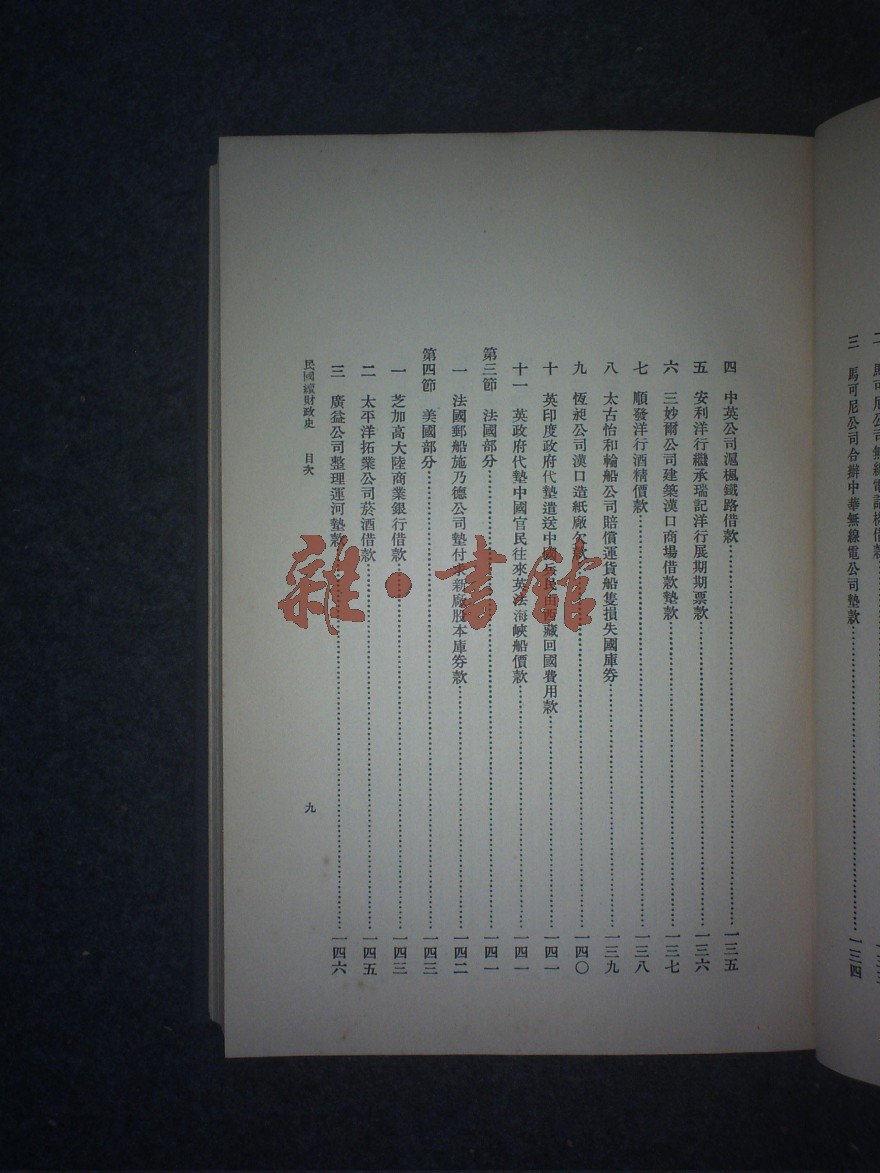 二 馬可尼公司無線電話機借款
三 馬可尼公司合辦中華無線電公司墊款……一三四
四 中英公司滬楓鐵路借款……一三五
五 安利洋行繼承瑞記洋行展期期票款……一三六
六 三妙爾公司建築漢口商場借款墊款……一三七
七 順發洋行酒精價款……一三八
八 太古怡和輪船公司賠償運貨船隻損失國庫券……一三九
九 恆昶公司漢口造紙廠欠款……一四〇
十 英印度政府代墊遣送中國兵民由西藏回國費用款……一四一
十一 英政府代墊中國官民往來英法海峽船價款……一四一
第三節 法國部分……一四一
一 法國郵船施乃德公司墊付求新廠股本庫券款……一四二
第四節 美國部分……一四三
一 芝加高大陸商業銀行借款……一四三
二 太平洋拓業公司菸酒借款……一四五
三 廣益公司整理運河墊款……一四六
民國續財政史 目次
九
雜·書館